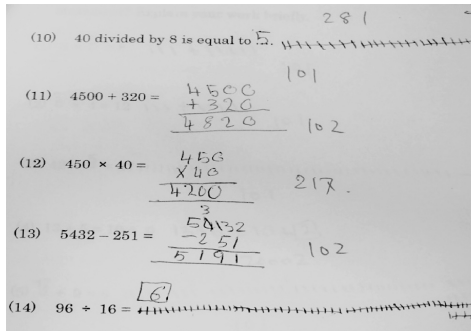 281
(10) 40 divided by 8 is equal to 5.
101
(11) 4500 + 320 = 4500
+320
4820
102
(12) 450 × 40 = 450
×40
4200
217.
3
(13) 5432 – 251 = 5432
-251
5191
102
6
(14) 96 ÷ 16 =